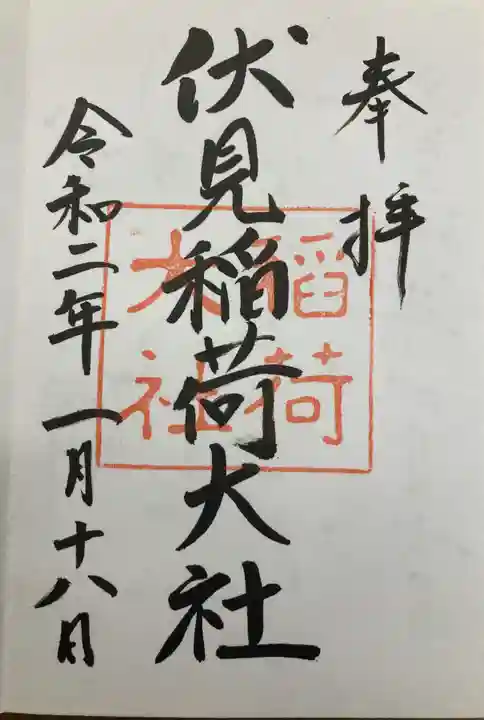 奉拝
伏見稲荷大社
稲荷
大社
令和二年一月十八日